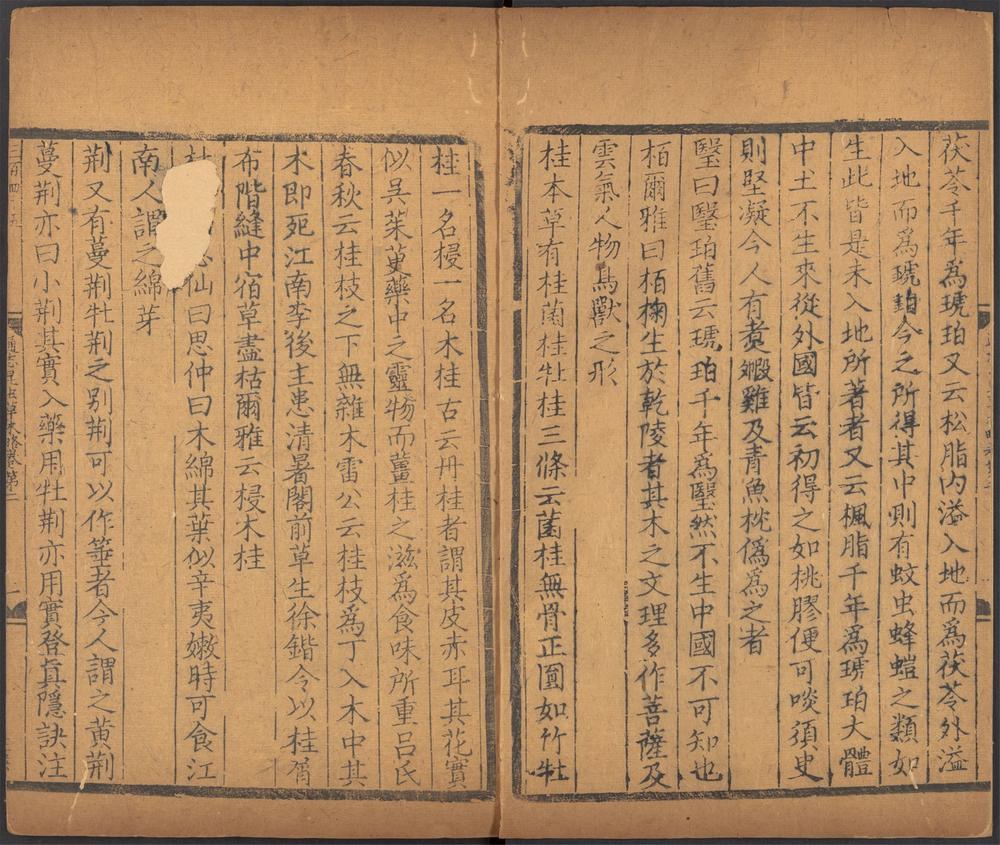 茯苓千年爲琥珀又云松脂内溢入地而爲茯苓外溢
入地而爲琥珀今之所得其中則有蚊虫蜂螘之類如
生此皆是未入地所著者又云楓脂千年爲琥珀大體
中土不生來從外國皆云初得之如桃膠便可啖須臾
則堅凝今人有煑毈雞及青魚枕僞為之者
瑿曰瑿珀舊云琥珀千年爲瑿然不生中國不可知也
栢爾雅曰栢椈生於乾陵者其木之文理多作菩薩及
雲氣人物鳥獸之形
桂本草有桂菌桂牡桂三條云菌桂無骨正圓如竹牡
桂一名梫一名木桂古云丹桂者謂其皮赤耳其花實
似吳茱萸藥中之靈物而薑桂之滋爲食味所重吕氏
春秋云桂枝之下無雜木雷公云桂枝爲丁入木中其
木即死江南李後主患清暑閣前草生徐鍇令以桂屑
布階縫中宿草盡枯爾雅云梫木桂
仙曰思仲曰木綿其葉似辛夷嫩時可食江
南人謂之綿芽
荆又有蔓荆牡荆之别荆可以作箠者今人謂之黄荆
蔓荆亦曰小荆其實入藥用牡荆亦用實登真隱訣注